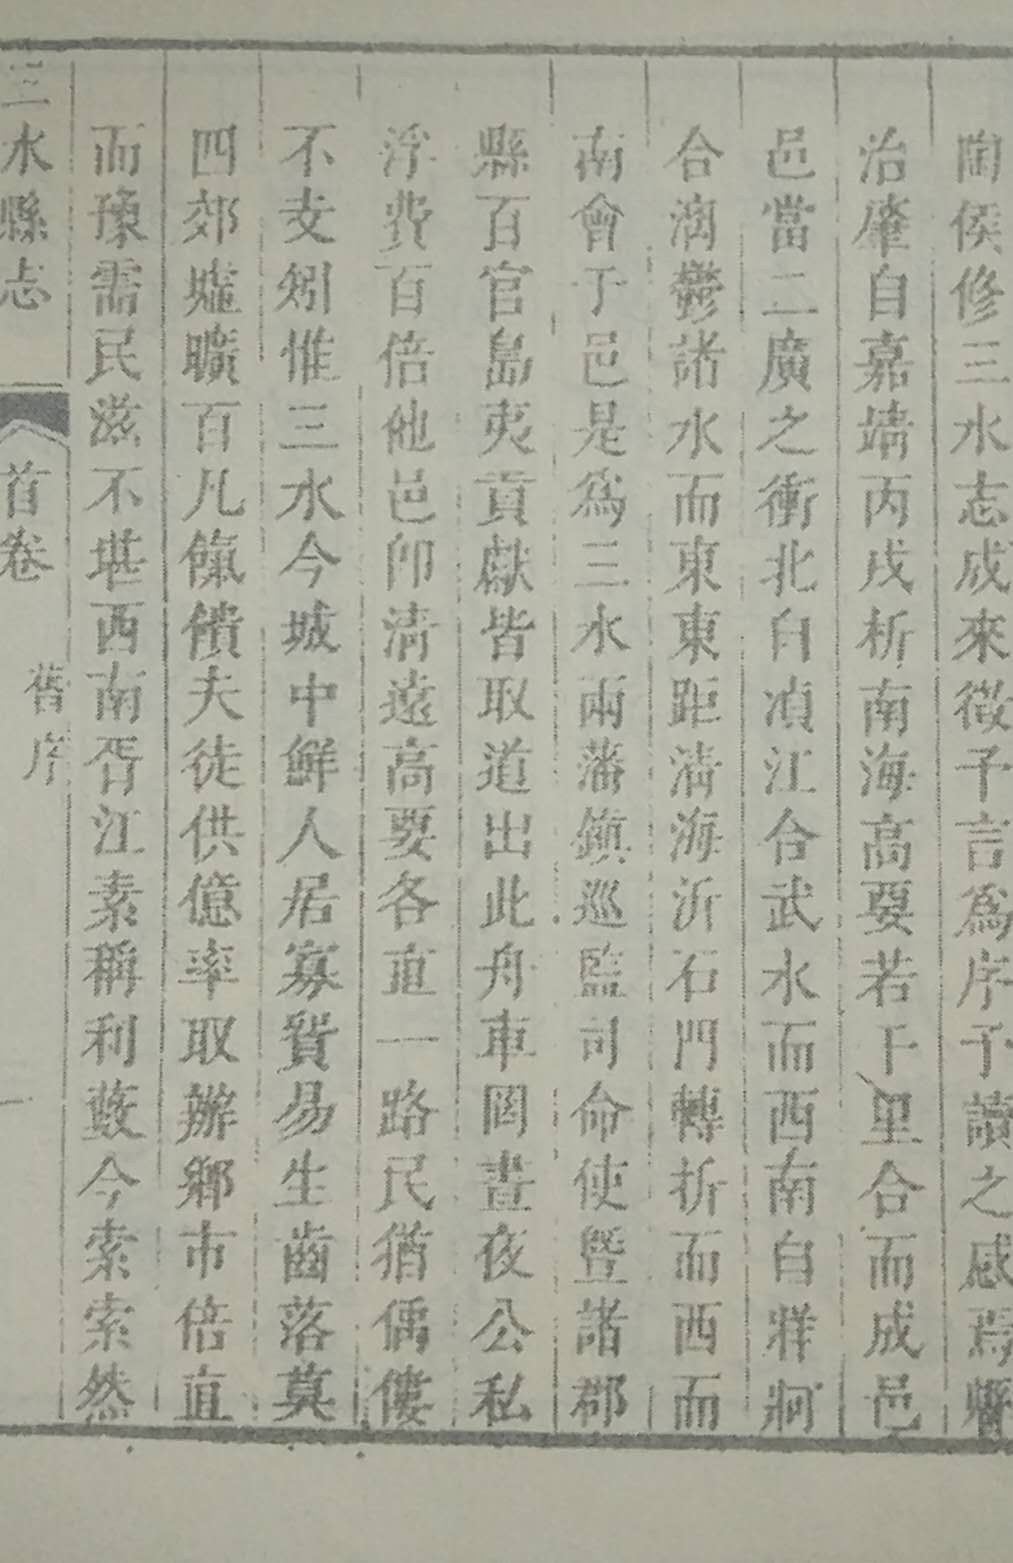 陶侯修三水志成來徵予言爲序予讀之感焉暫
治肇自嘉靖丙戌析南海高要若干里合而成邑
邑當二廣之衝北自湞江合武水而西南自牂牁
合漓鬱諸水而東東距淸海沂石門轉折而西而
南會于邑是爲三水兩藩鎮巡監司命使曁諸郡
縣百官島夷貢獻皆取道出此舟車罔晝夜公私
浮費百倍他邑卽淸遠高要各直一路民猶傴僂
不支矧惟三水今城中鮮人居寡貿易生齒落莫
四郊墟曠百凡餼饋夫徒供億率取辦鄉市倍直
而豫需民滋不堪西南胥江素稱利藪今索索然
三水縣志
首卷
舊序
一